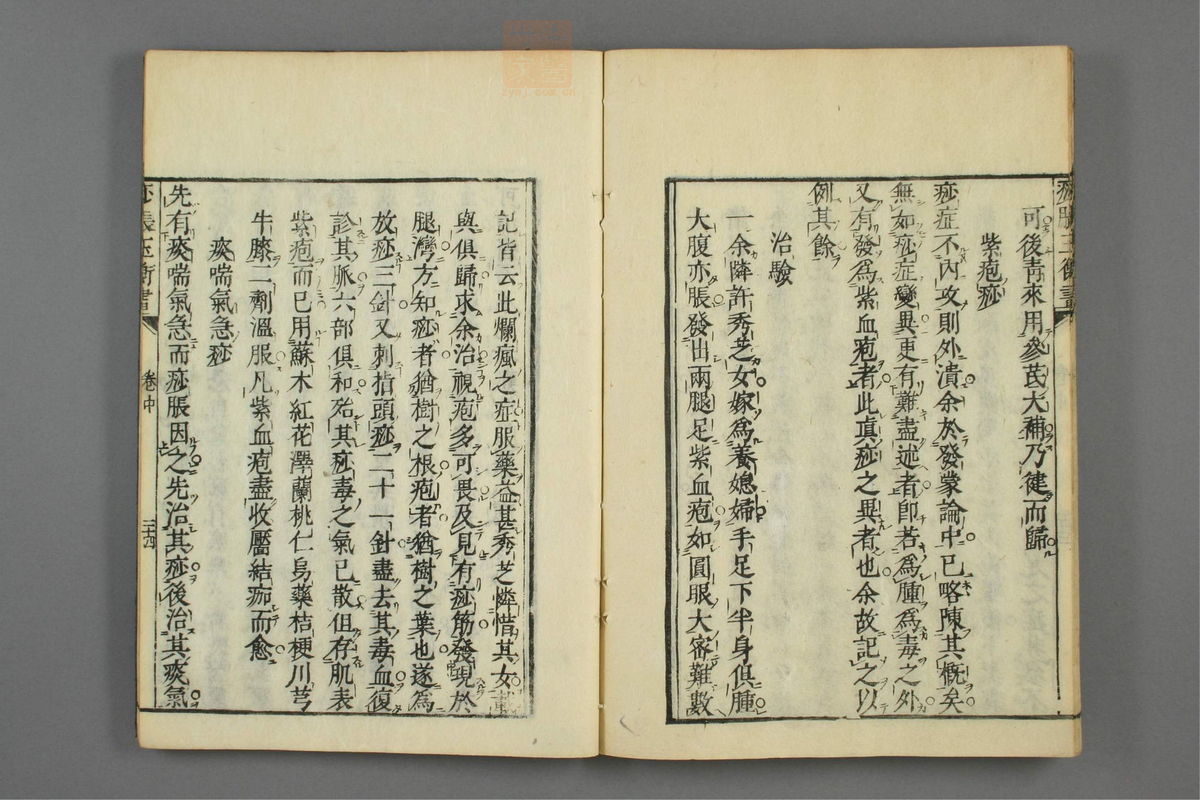 痧脹玉衡書
可後青來用參芪大補乃健而歸
紫疱痧
痧症不內攻則外潰余於發蒙論中已略陳其概矣
無如痧症變異更有難盡述者即若為腫為毒之外
又有發為紫血疱者此真痧之異者也余故記之以
例其餘
治驗
一余隣許秀芝女嫁為養媳婦手足下半身俱腫
大腹亦脹發出兩腿足紫血疱如圓眼大密難數
記皆云此爛瘋之症服藥益甚秀芝憐惜其女載
與俱歸求余治視疱多可畏及見有痧筋發現於
腿灣方知痧者猶樹之根疱者猶樹之葉也遂為
放痧三針又刺指頭痧二十一針盡去其毒血復
診其脈六部俱和殆其痧毒之氣已散但存肌表
紫疱而已用蘇木紅花澤蘭桃仁烏藥桔梗川芎
牛膝二劑溫服凡紫血疱盡收靨結痂而愈
痰喘氣急痧
先有痰喘氣急而痧脹因之先治其痧後治其痰氣
痧脹玉衡書
卷中
三十四